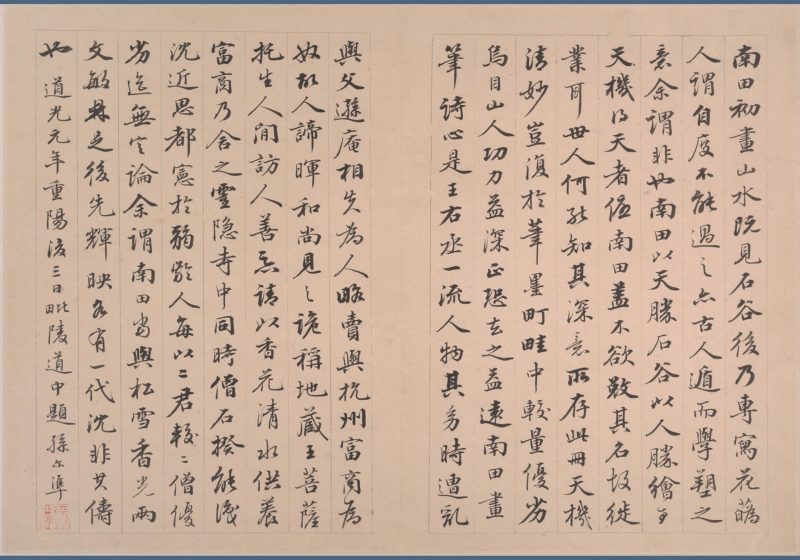 南田初畫山水既見石谷後乃專寫花鷭
人謂自度不能過之亦古人遁而學塑之
意余謂非也南田以天勝石谷以人勝繪事
天機得天者優南田蓋不欲敵其名故徙
業耳世人何能知其深意所存此冊天機
清妙豈復於筆墨町畦中較量優劣
烏目山人功力益深正恐去之益遠南田畫
筆詩心是王右丞一流人物其多時遭亂
與父遜庵相失為人略賣與杭州富商為
奴故人諦暉和尚見之詭稱地藏王菩薩
托生人間訪人善惡請以香花清水供養
富商乃舍之靈隱寺中同時僧石揆能識
沈近思都憲於弱齡人每以二君較二僧優
劣迄無定論余謂南田當與松雪香光兩
文敏異足後先輝映各有一代沈非其儔
也 道光元年重陽後三日毗陵道中題 孫爾準